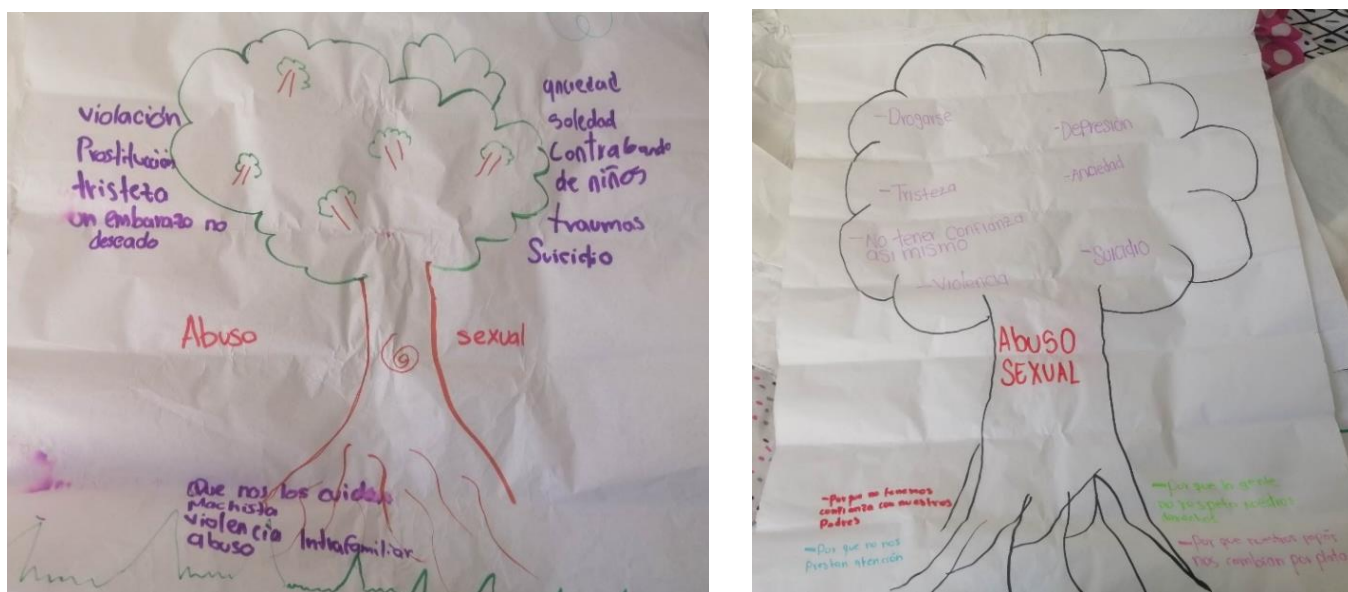 violación
Prostitución
tristeza
un embarazo no
deseado
ansiedad
soledad
Contrabando
de niños
traumas
Suicidio
Abuso
sexual
Que nos los cuidan
Machista
violencia Intrafamiliar
abuso
-Drogarse
-Depresión
-Tristeza
-Ansiedad
-No tener confianza
asi mismo
-Suicidio
-Violencia
ABUSO
SEXUAL
-Porque no tenemos
confianza con nuestros
Padres
-Por que no nos
Prestan atención
-Por que la gente
no respeta nuestros
derechos
-Por que nuestros papás
nos cambian por plata